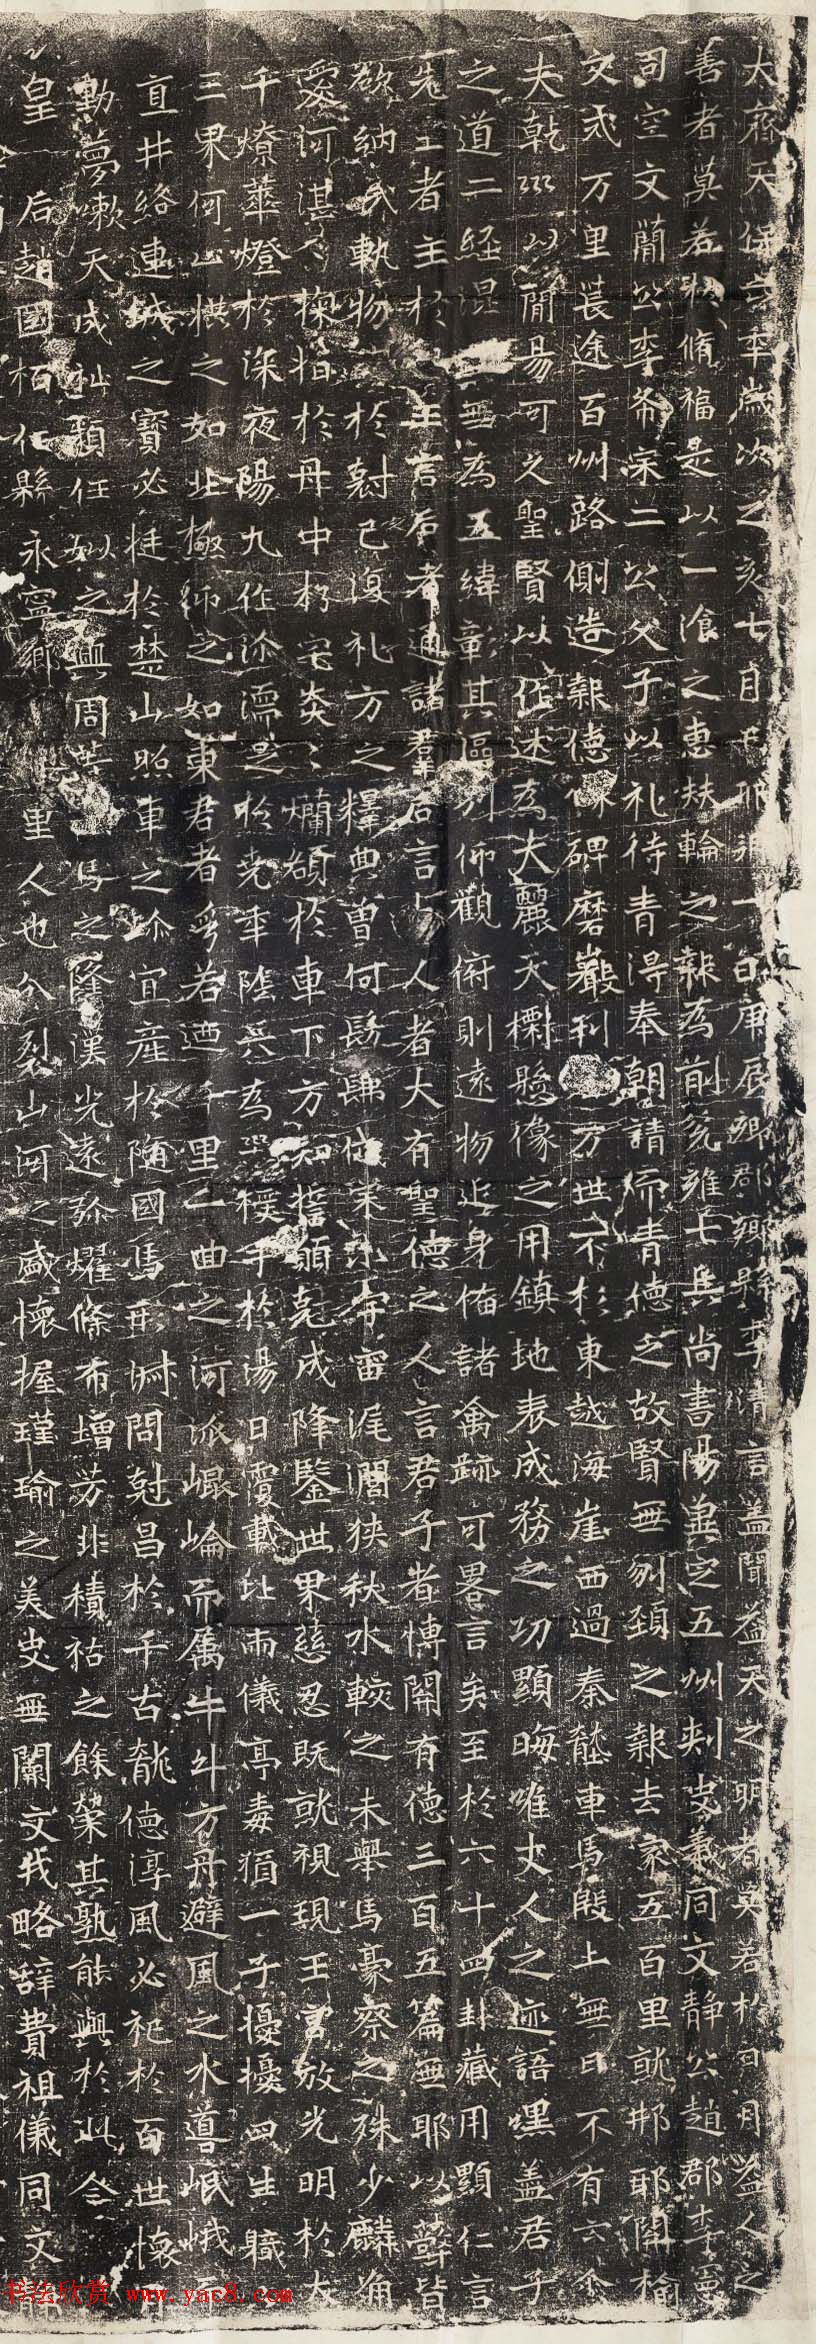 大齊天保六年歲次乙亥七月 一日庚辰 郡 縣李清言蓋聞益天之明者莫若於日月益人之
善者莫若於脩福是以一飡之惠扶輪之報為前兗雍七兵尚書陽並定五州刺史義同文靜公趙郡李憲
司空文簡公李希宗二公父子以礼待青得奉朝請而青德之故賢無刎頚之報去家五百里就邢耶關榆
交戎万里萇途百州路側造報德像碑磨巖刊 万世不朽東越海崖西過秦隴車馬殷上無日不有六
夫乾巛以簡易可久聖賢以作述為大麗天懸像之用鎮地表成務之功顯晦唯丈人之迹語嘿蓋君子
之道二經混 無為五緯彰其區別仰觀俯則遠物近身備諸禽跡可畧言矣至於六十四卦藏用顯仁言
先王者主於 王言后者通諸羣后言 人者大有聖德之人言君子者博關有德三百五篇無耶以蔽皆
欲納民軌物 於尅己復礼方之釋典曽何髣髴 宇宙涯濶狹秋水較之未舉馬豪察之殊少麟角
愛河湛湛掬指於舟中朽宅炎炎爛額於車下方知誓願克成降鑒世界慈忍既就視現王宮放光明於大
千燎華燈於深夜陽九作沴濡足於堯年陰 為巛 援手於湯日覆載壯兩儀亭毒猶一子擾擾四生職
三界何 拱之如北極仰之如東君者 若迺千里一曲之河派崐崘而属牛斗方舟避風之水導岷峨
直井絡連城之寶必挺於楚山照車之珍宜產於隨國馬 問尅昌於千古龍德淳風必祀於百世懷
動夢嗽天成 類任姒之興周 馬之隆漢光遠弥耀條布增芳非積祜之餘 其孰能與於此今
皇 后趙國栢仁縣永寧鄉 里人也分裂山河之盛懷握瑾瑜之美史無闕文我略辭費祖儀同文
书法欣赏 www.yac8.com